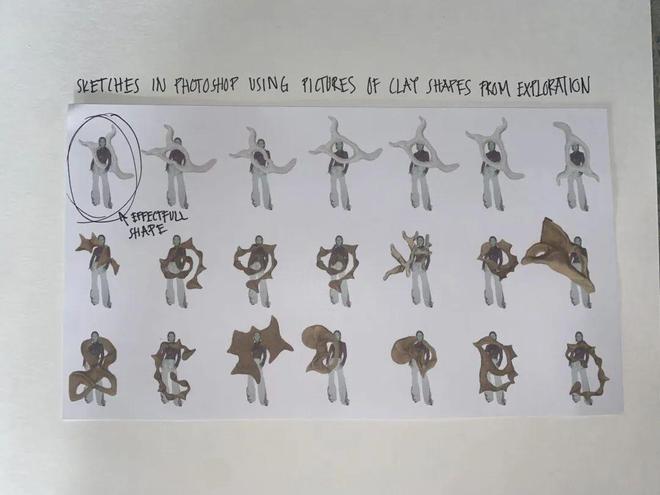 SKETCHES IN PHOTOSHOP USING PICTURES OF CLAY SHAPES FROM EXPLORATION
EFFECTFULL
SHAPE